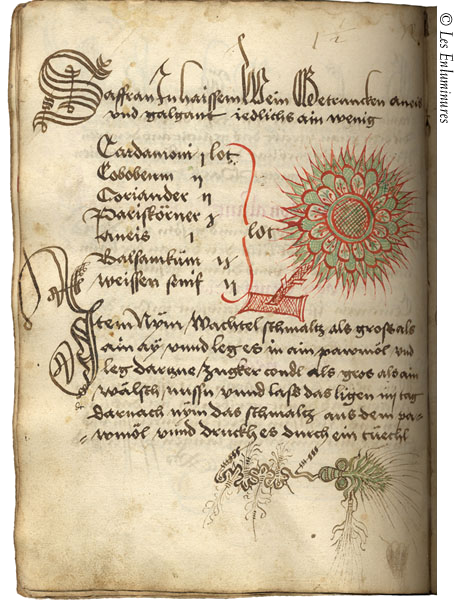 Saffran In haissem Wein Getruncken aneis
vnd galgant iedlichs ain wenig
Cardamoni j lot
Cobobenn ij
Coriander ij
Pariskörner
Aneis j lot
Balsamkum ij
weissen senif ij
Item Nÿm Wachtel schmaltz als gross als
ain aÿ vnd leg es in ain pawmöl vnd
leg darzue zugker candl als gros als ain
wälsch nussn vnnd lass das ligen iij tag
darnach nÿm das schmaltz aus dem pa=
wmöl vnnd druckh es durch ein tüechl
© Les Enluminures